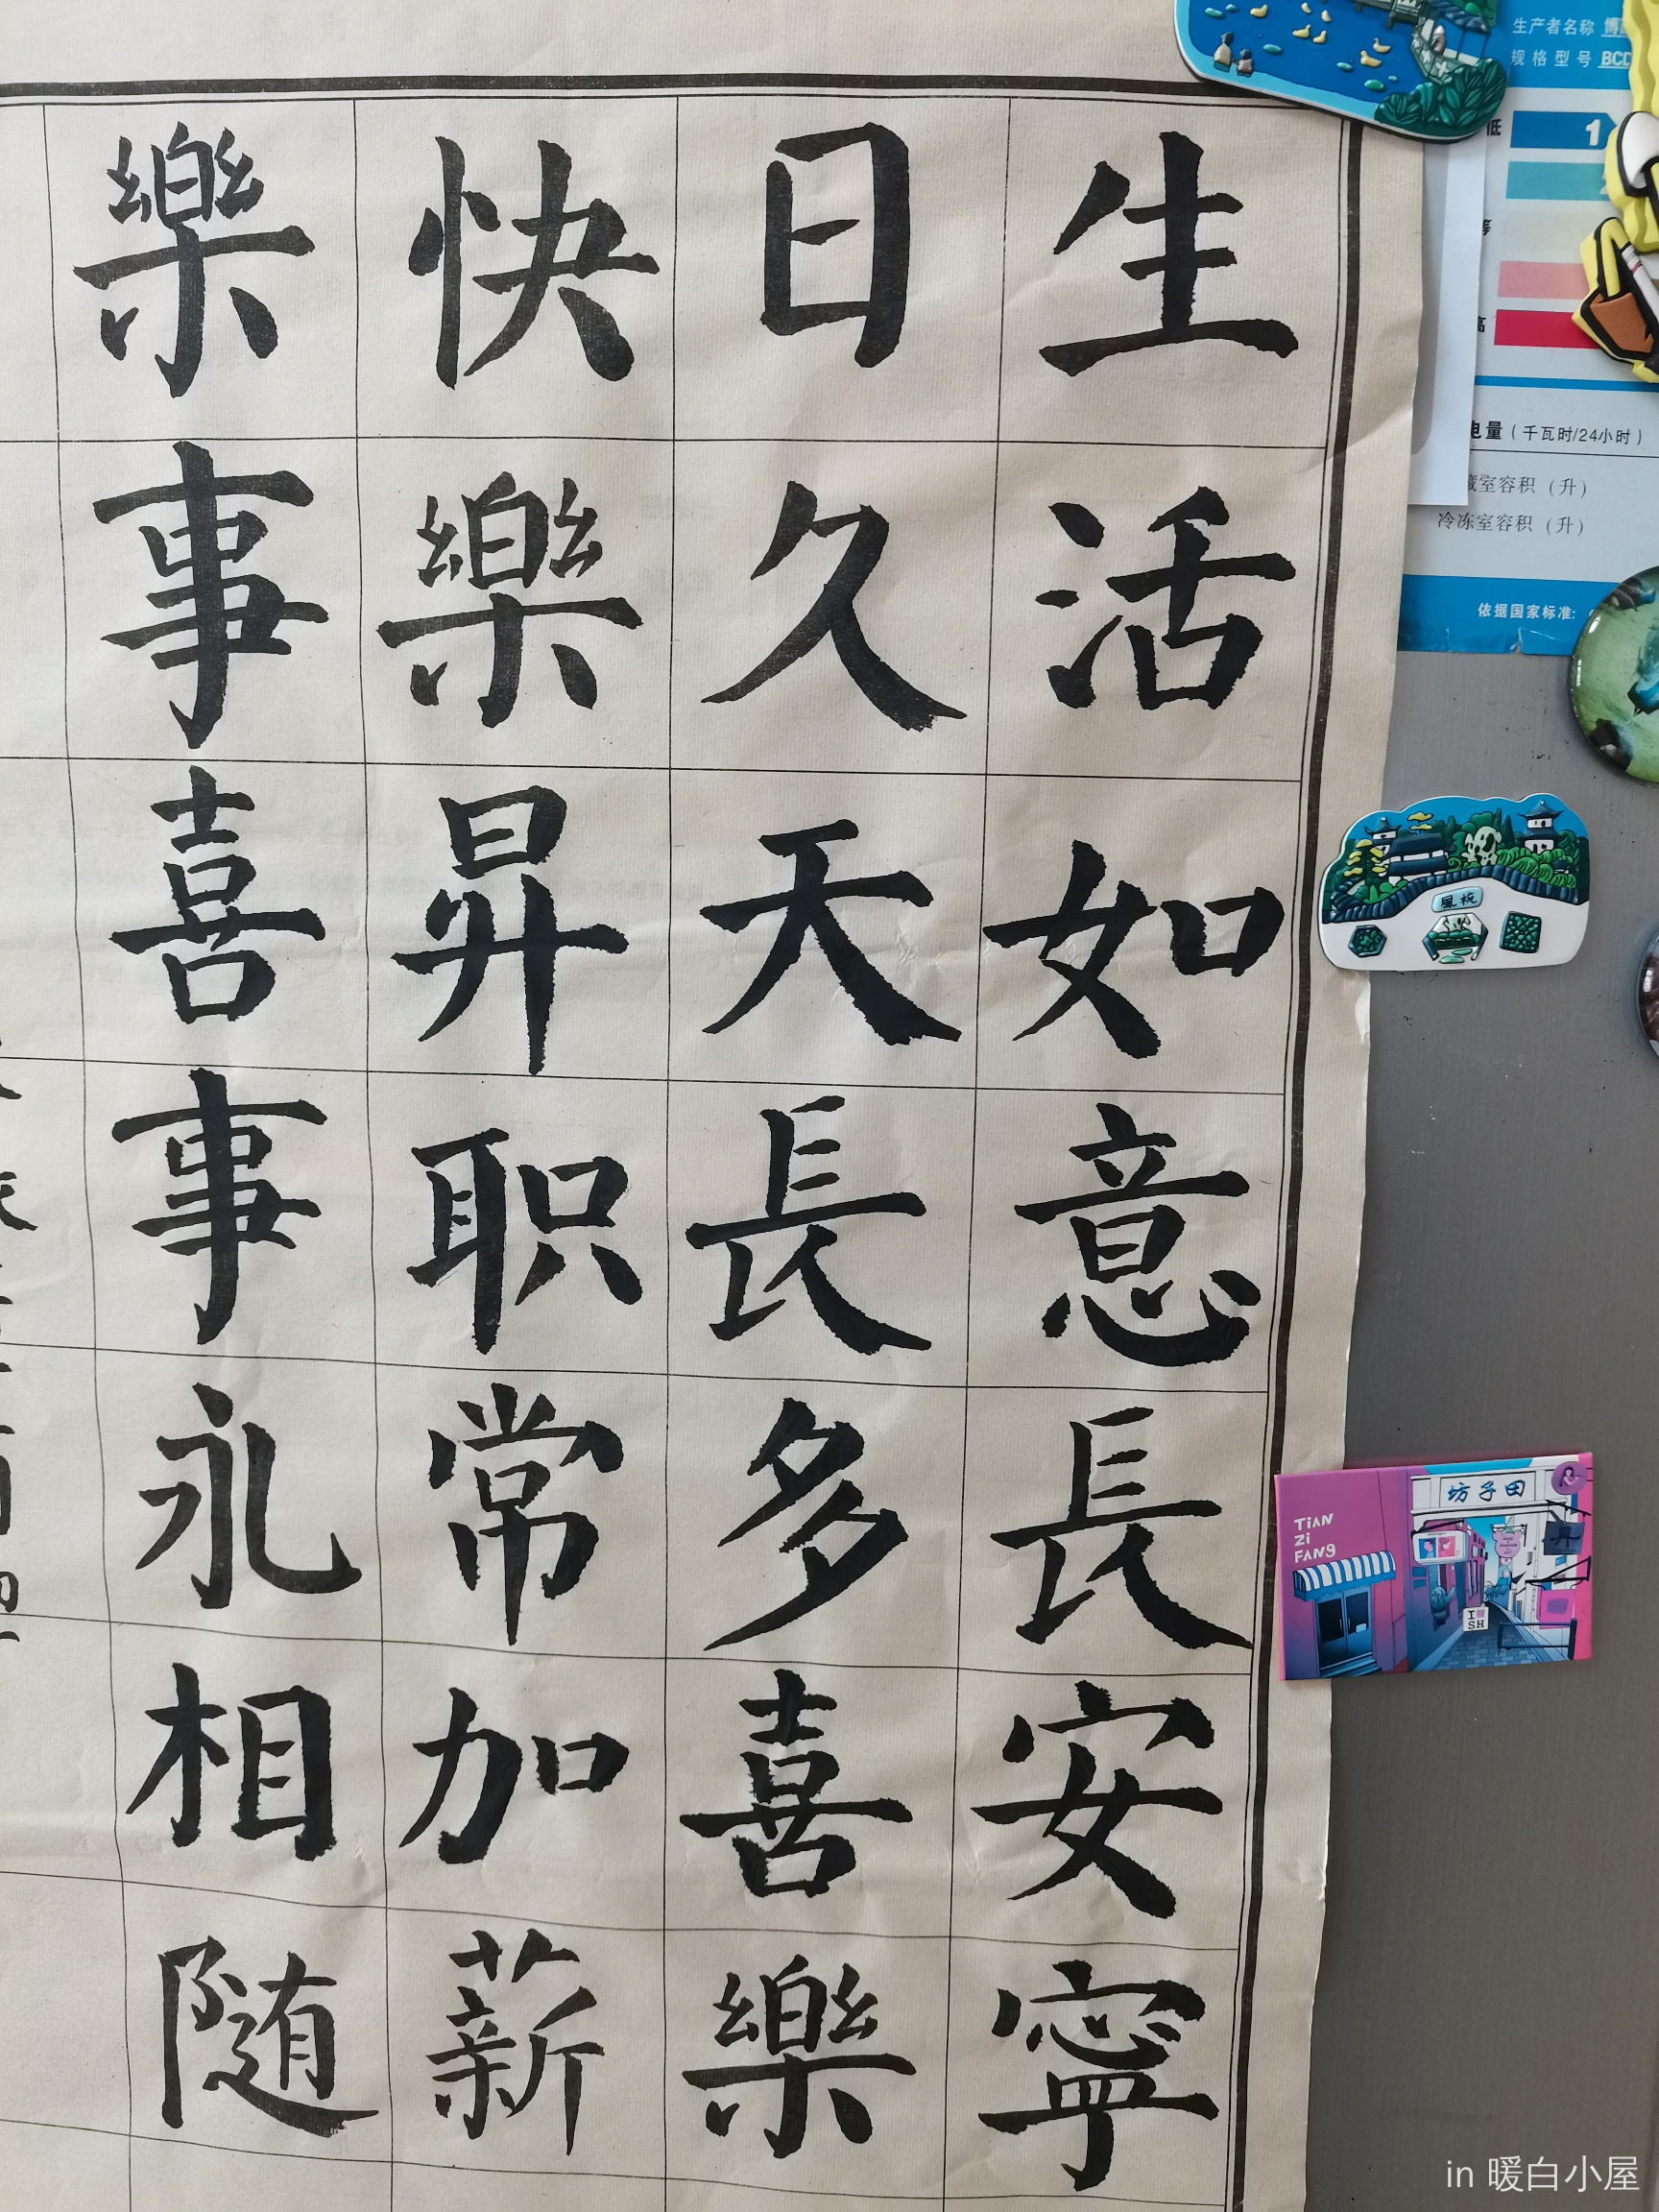 生活如意長安寧
日久天長多喜樂
快樂昇职常加薪
樂事喜事永相随
生产者名称
规格型号 BCD
1
电量(千瓦时/24小时)
藏室容积(升)
冷冻室容积(升)
依据国家标准:
坊子田
TiAN
Zi
FANG
I
SH
in 暖白小屋